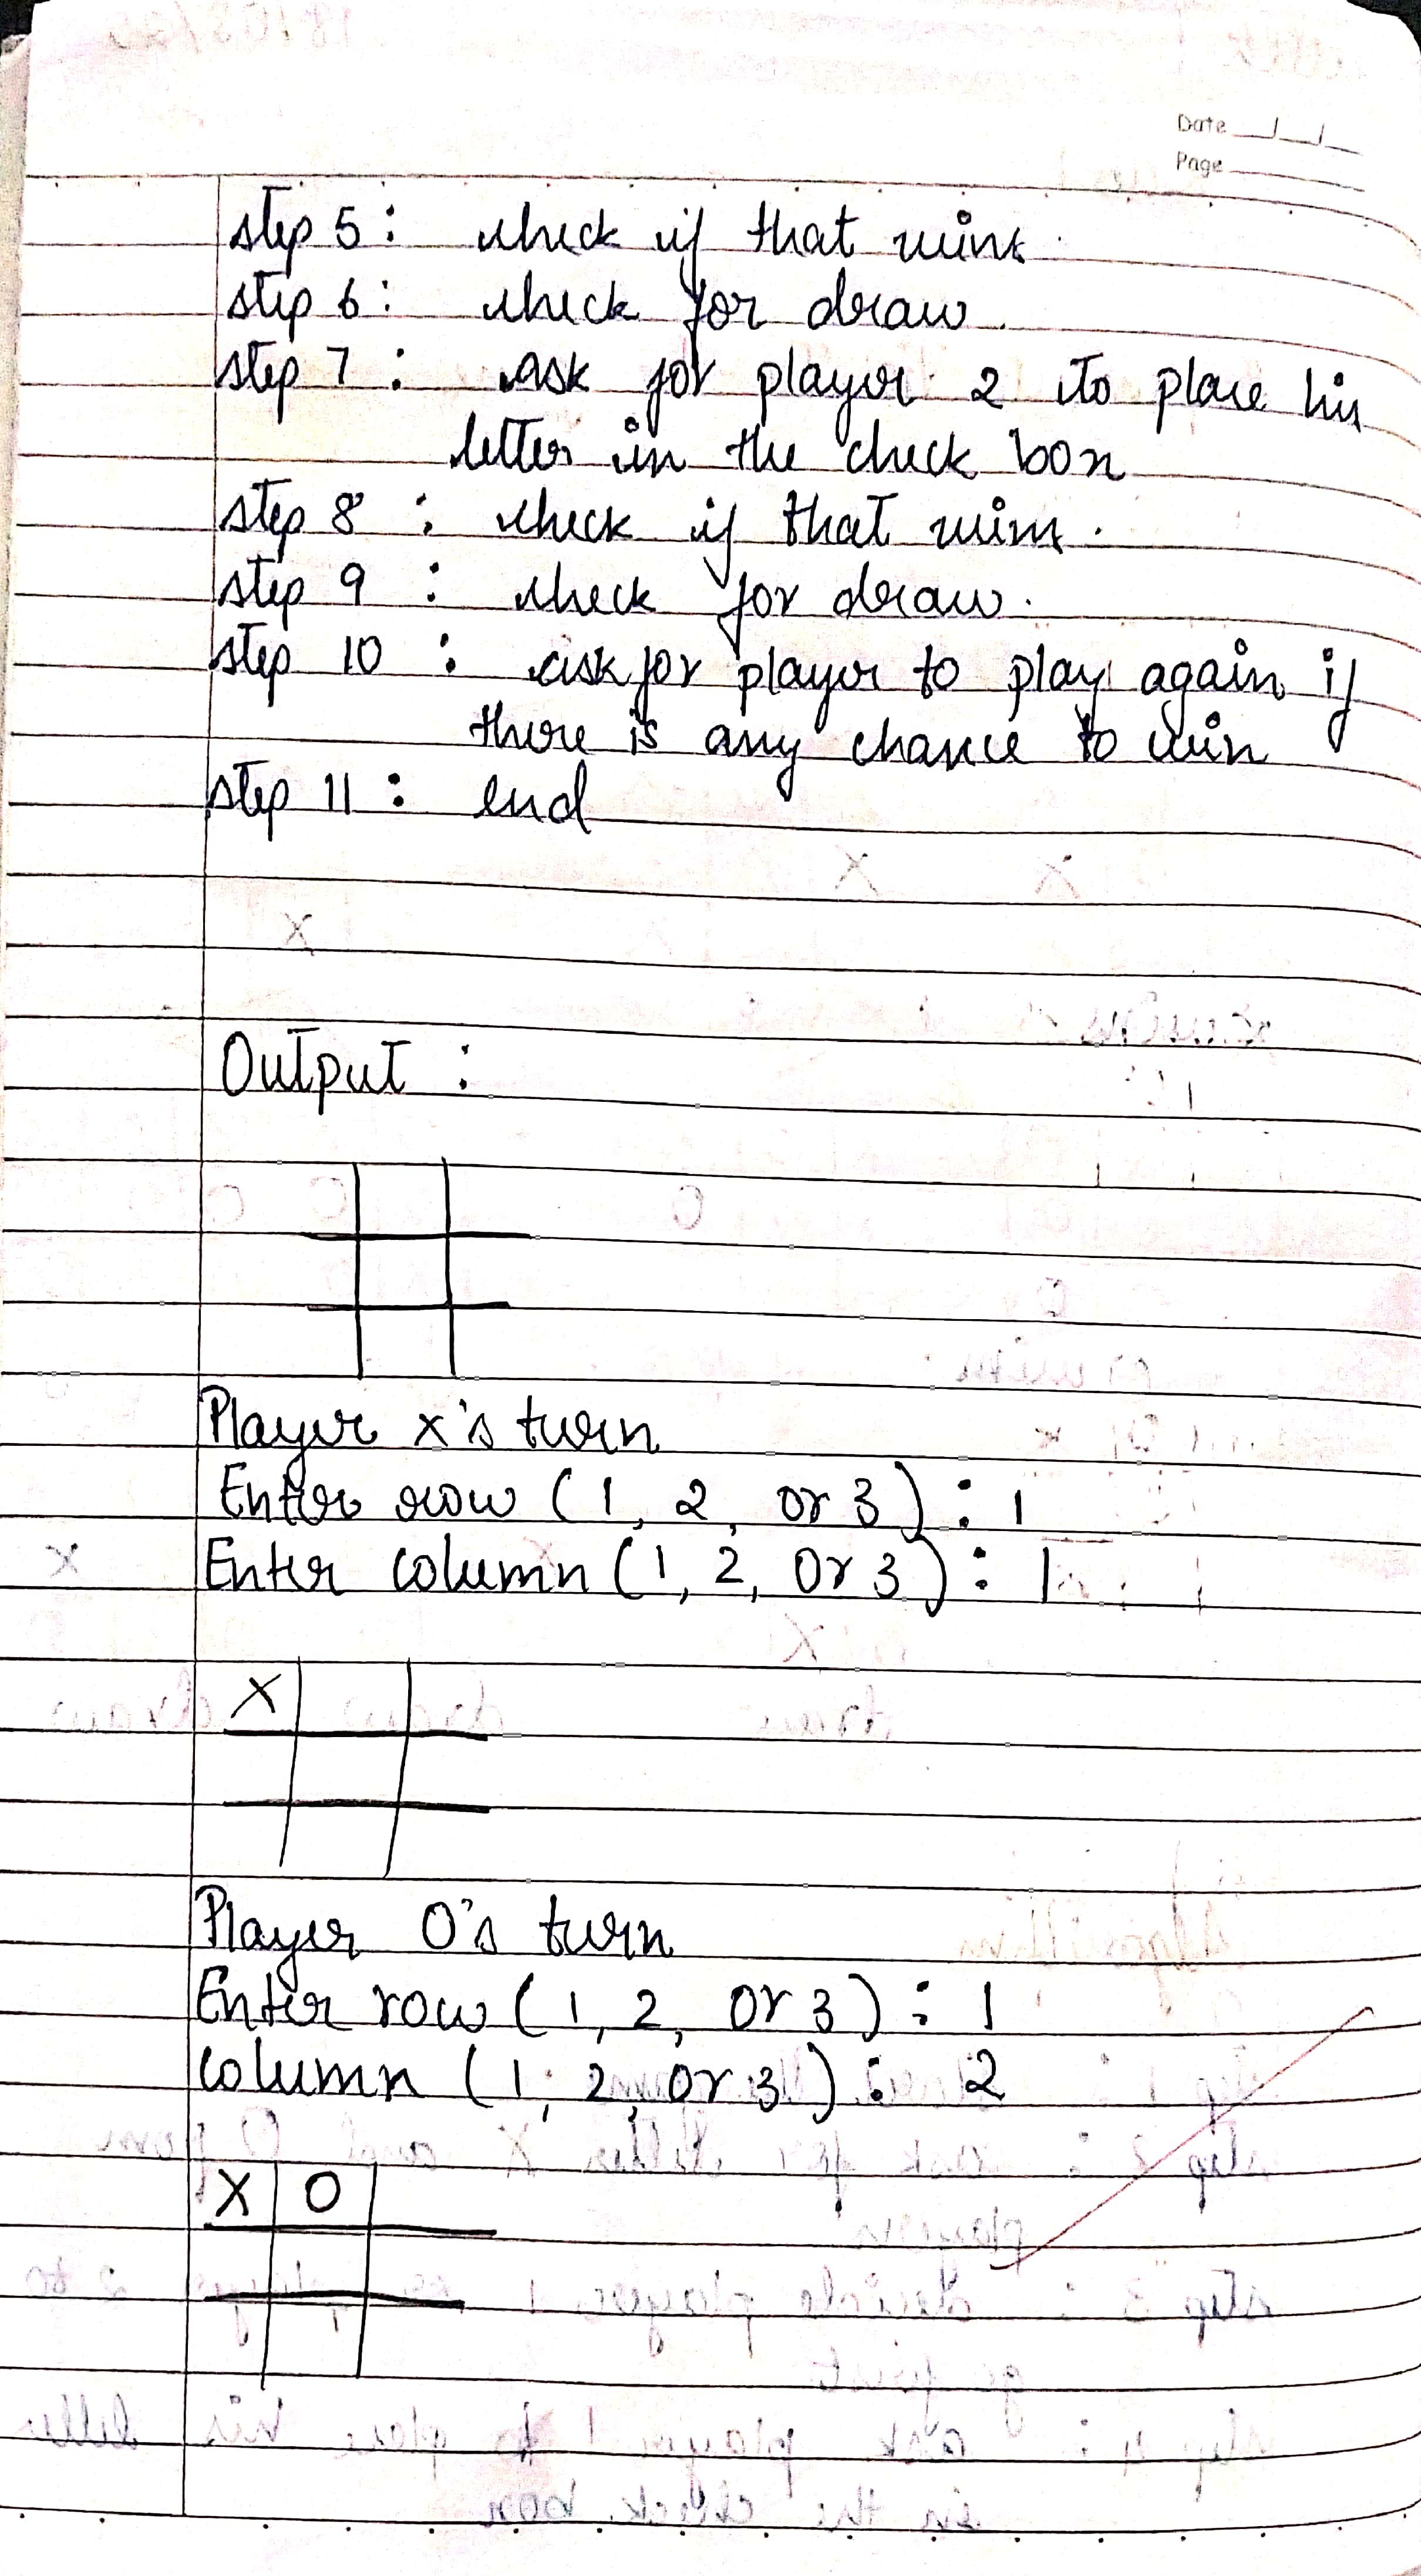 Date
Page
step 5 : check if that wins.
step 6 : check for draw.
step 7 : ask for player 2 to place his
letter in the check box
step 8 : check if that wins.
step 9 : check for draw.
step 10 : ask for player to play again if
there is any chance to win
step 11 : end
Output :
Player x's turn
Enter row (1, 2, or 3) : 1
Enter column (1, 2, or 3) : 1
X
Player O's turn
Enter row (1, 2, or 3) : 1
column (1, 2, or 3) : 2
X O